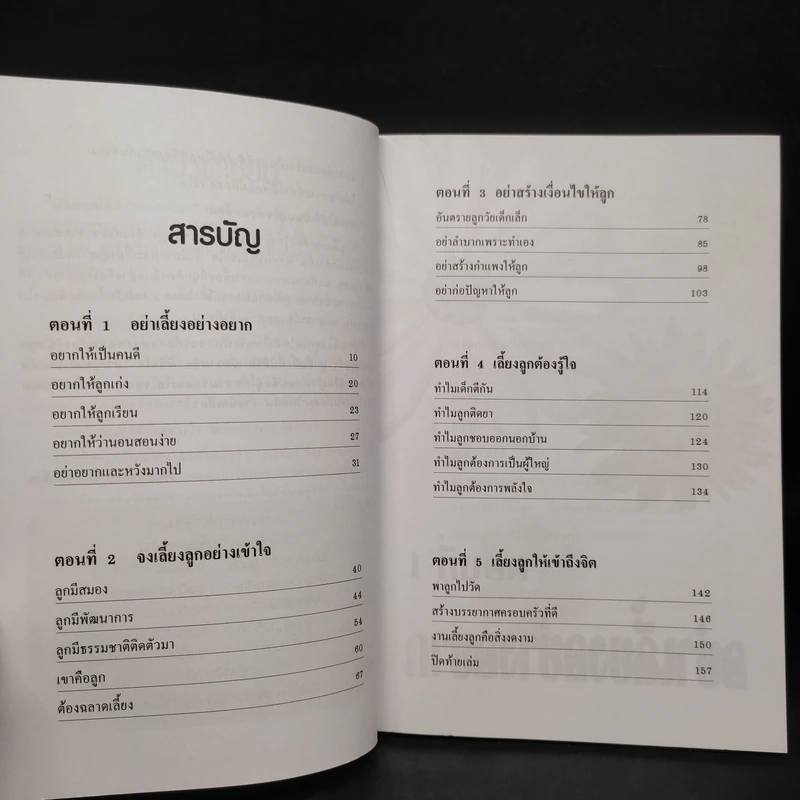 สารบัญ
ตอนที่ 1 อย่าเลี้ยงอย่างอยาก
อยากให้เป็นคนดี 10
อยากให้ลูกเก่ง 20
อยากให้ลูกเรียน 23
อยากให้ว่านอนสอนง่าย 27
อย่าอยากและหวังมากไป 31
ตอนที่ 2 จงเลี้ยงลูกอย่างเข้าใจ
ลูกมีสมอง 40
ลูกมีพัฒนาการ 44
ลูกมีธรรมชาติติดตัวมา 54
เขาคือลูก 60
ต้องฉลาดเลี้ยง 67
ตอนที่ 3 อย่าสร้างเงื่อนไขให้ลูก
อันตรายลูกวัยเด็กเล็ก 78
อย่าลำบากเพราะทำเอง 85
อย่าสร้างกำแพงให้ลูก 98
อย่าก่อปัญหาให้ลูก 103
ตอนที่ 4 เลี้ยงลูกต้องรู้ใจ
ทำไมเด็กตีกัน 114
ทำไมลูกติดยา 120
ทำไมลูกชอบออกนอกบ้าน 124
ทำไมลูกต้องการเป็นผู้ใหญ่ 130
ทำไมลูกต้องการพลังใจ 134
ตอนที่ 5 เลี้ยงลูกให้เข้าถึงจิต
พาลูกไปวัด 142
สร้างบรรยากาศครอบครัวที่ดี 146
งานเลี้ยงลูกคือสิ่งงดงาม 150
ปิดท้ายเล่ม 157